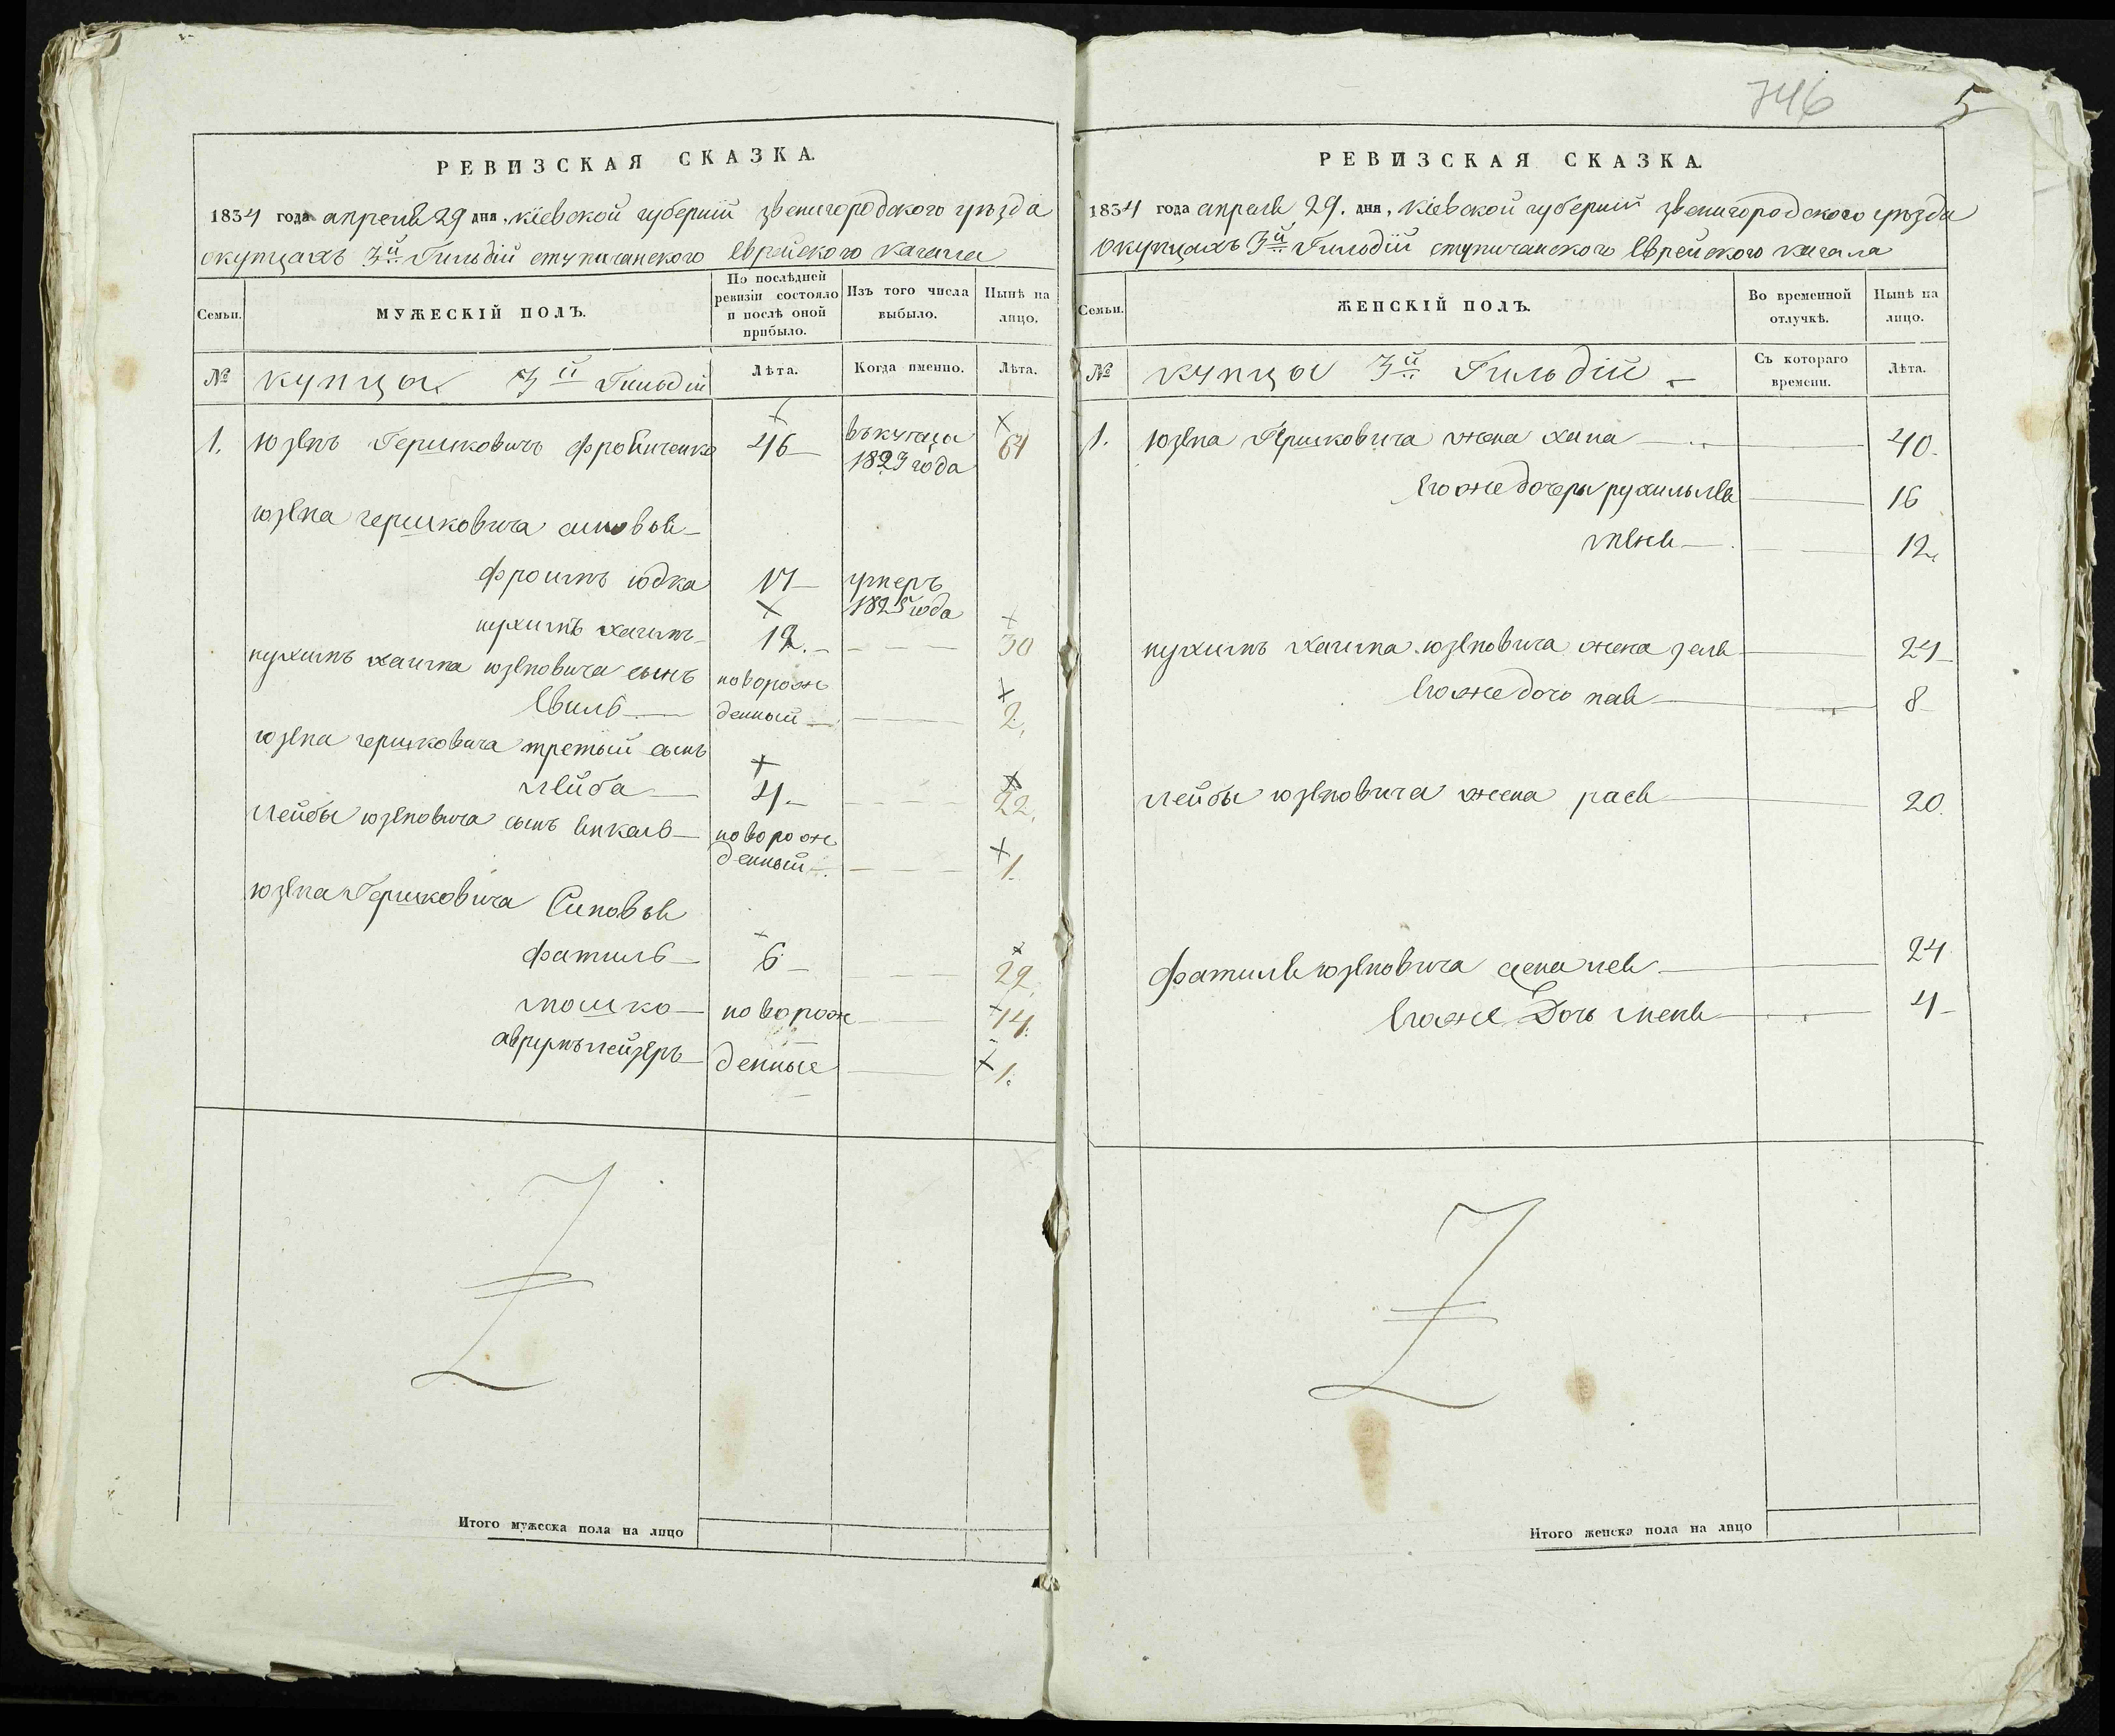 РЕВИЗСКАЯ СКАЗКА.
1834 года апреля 29 дня, Кіевской губерніи звенигородского уѣзда
окупцахъ 3й Гильдіи ступичанского Еврейского кагала
Семьи. МУЖЕСКІЙ ПОЛЪ. По послѣдней ревизіи состояло и послѣ оной прибыло. Изъ того числа выбыло. Нынѣ на лицо.
№ купцы 3й Гильдіи Лѣта. Когда именно. Лѣта.
1. Юзепъ Гершковичъ 46 въкупца 64
1823 года
юзепа гершковича синовья
фроимъ юдка 17 умеръ
1825 года
нухимъ хаимъ 12. 30
нухимъ хаима юзеповича сынъ новорож
денный 2.
юзепа гершковича третый сынъ
Лейба 4 22.
Лейбы юзеповича сынъ новорож
денный 1.
юзепа Гершковича Синовья
фатиль 6 22.
мошко новорож 14.
денные 1.
Итого мужеска пола на лицо
746 5
РЕВИЗСКАЯ СКАЗКА.
1834 года апреля 29. дня, Кіевской губерніи звенигородского уѣзда
Окупцахъ 3й Гильдіи ступичанского Еврейского кагала
Семьи. ЖЕНСКІЙ ПОЛЪ. Во временной отлучкѣ. Нынѣ на лицо.
№ купцы 3й Гильдіи Съ котораго времени. Лѣта.
1. Юзепа Гершковича жена хана 40.
Егоже дочеры 16
12.
нухимъ хаима юзеповича жена 24
Егоже дочь 8
Лейбы юзеповича жена рася 20.
Фатиля юзеповича 24
Егоже Дочь 4
Итого женска пола на лицо